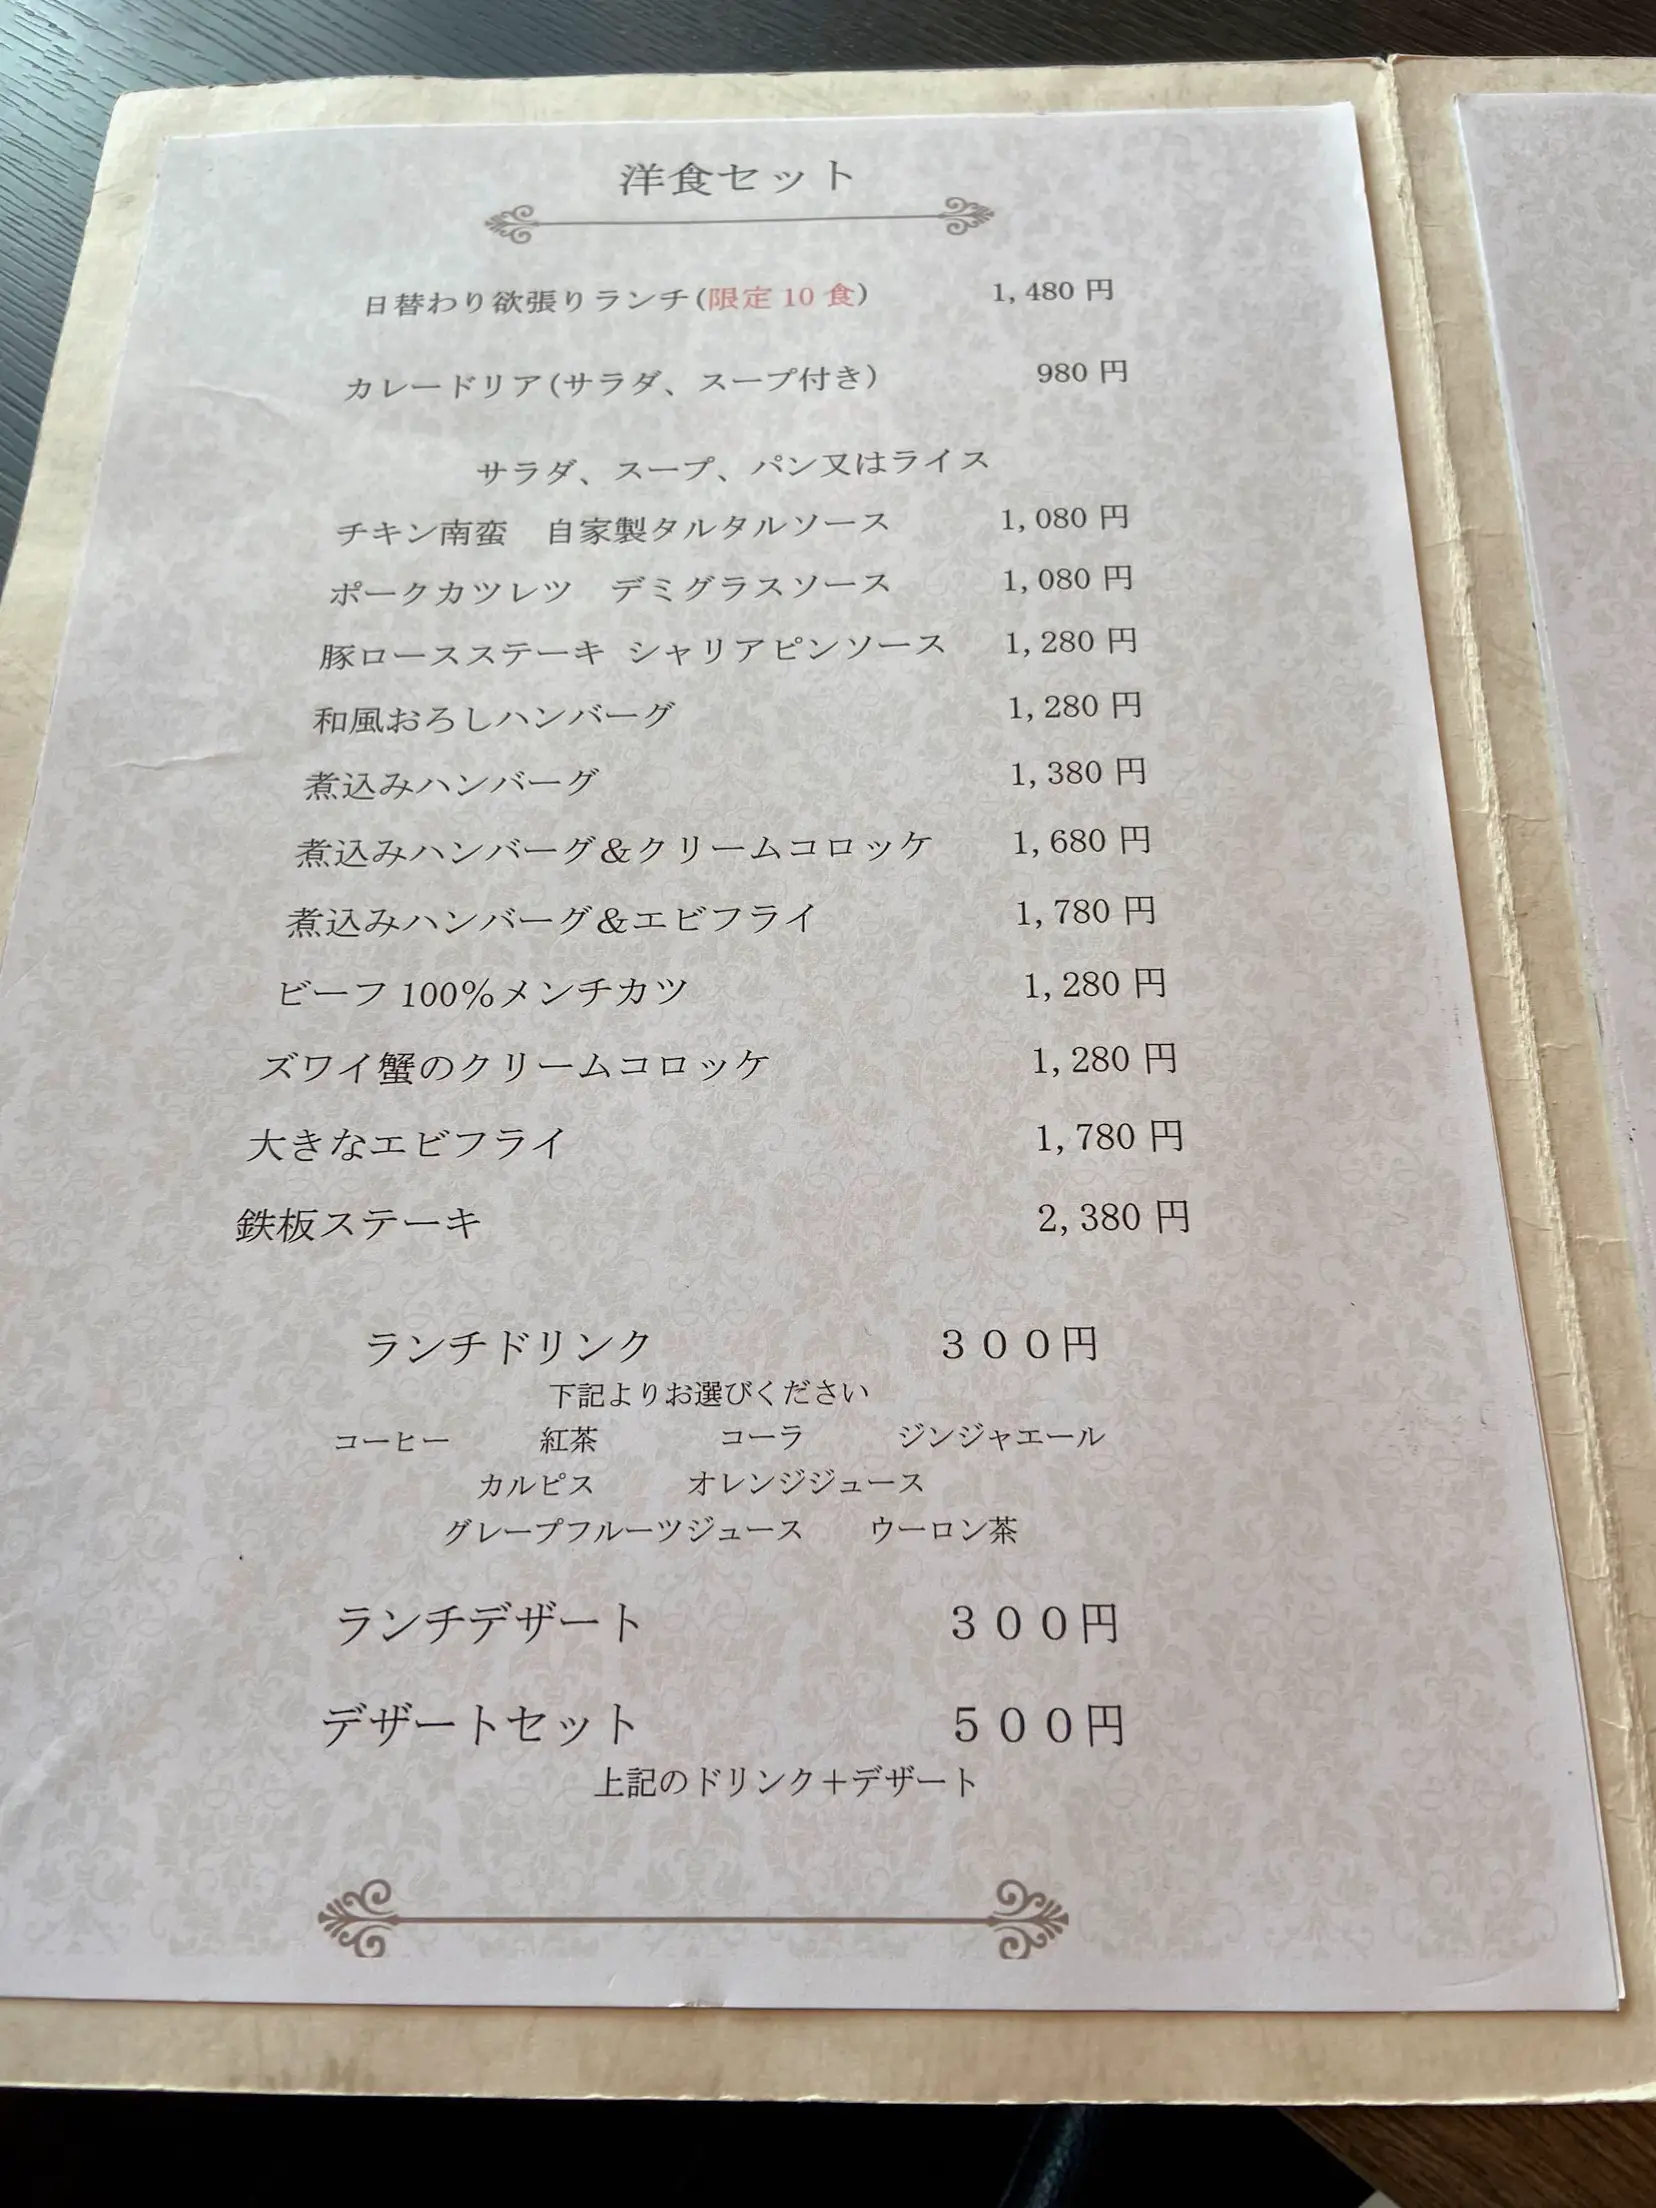 洋食セット
日替わり欲張りランチ(限定10食) 1,480円
カレードリア(サラダ、スープ付き) 980円
サラダ、スープ、パン又はライス
チキン南蛮 自家製タルタルソース 1,080円
ポークカツレツ デミグラスソース 1,080円
豚ロースステーキ シャリアピンソース 1,280円
和風おろしハンバーグ 1,280円
煮込みハンバーグ 1,380円
煮込みハンバーグ&クリームコロッケ 1,680円
煮込みハンバーグ&エビフライ 1,780円
ビーフ100%メンチカツ 1,280円
ズワイ蟹のクリームコロッケ 1,280円
大きなエビフライ 1,780円
鉄板ステーキ 2,380円
ランチドリンク 300円
下記よりお選びください
コーヒー 紅茶 コーラ ジンジャエール
カルピス オレンジジュース
グレープフルーツジュース ウーロン茶
ランチデザート 300円
デザートセット 500円
上記のドリンク+デザート